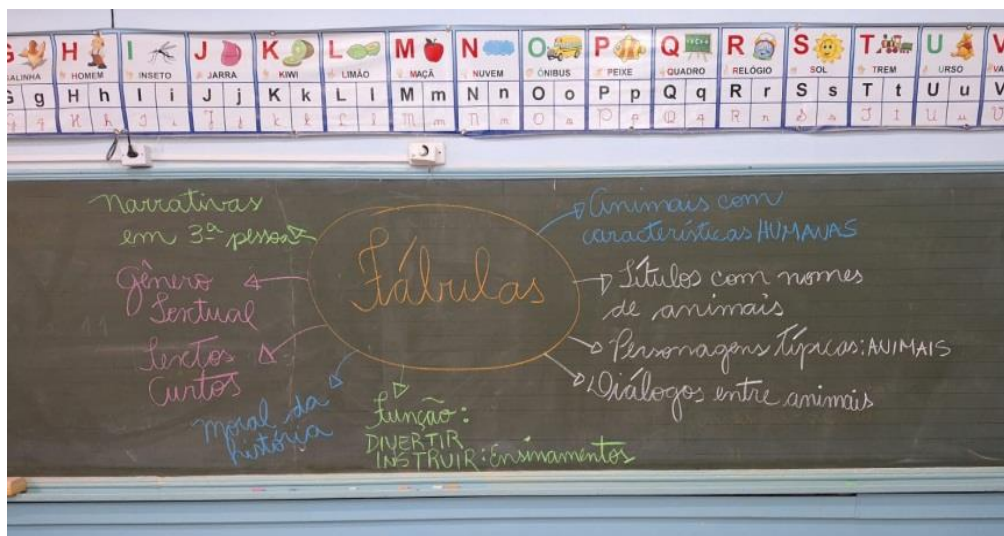 G H I J K L M N O P Q R S T U V
GALINHA HOMEM INSETO JARRA KIWI LIMÃO MAÇÃ NUVEM ÔNIBUS PEIXE QUADRO RELÓGIO SOL TREM URSO
G g H h I i J j K k L l M m N n O o P p Q q R r S s T t U u V
Narrativas
em 3ª pessoa
Gênero
Textual
Textos
Curtos
Moral da
história
Fábulas
Função:
DIVERTIR
INSTRUIR: Ensinamentos
Animais com
características HUMANAS
Títulos com nomes
de animais
Personagens típicas: ANIMAIS
Diálogos entre animais